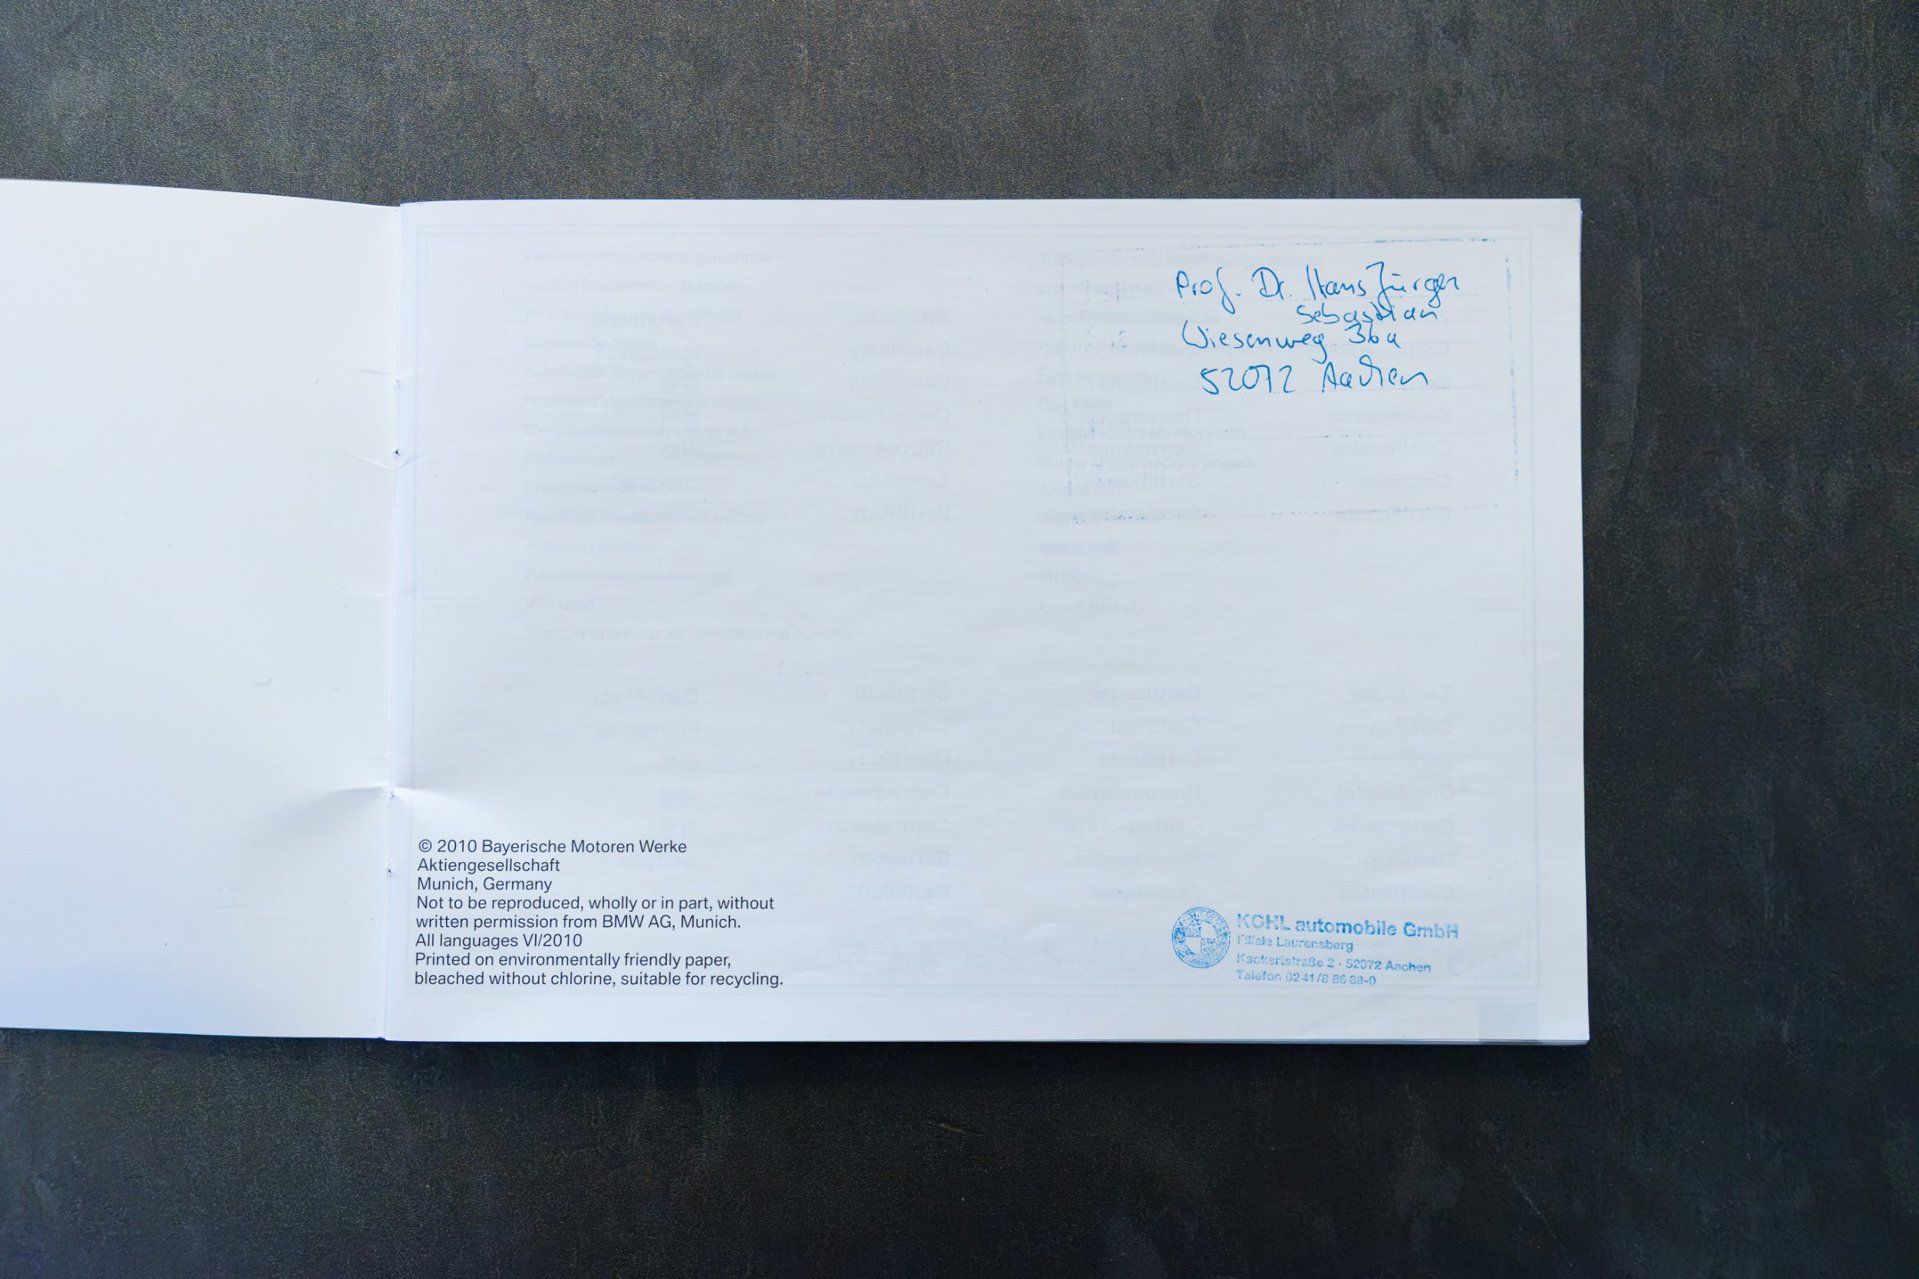 Prof. Dr. Hans Jürgen
Sebastian
Wiesenweg 36a
52072 Aachen
© 2010 Bayerische Motoren Werke
Aktiengesellschaft
Munich, Germany
Not to be reproduced, wholly or in part, without
written permission from BMW AG, Munich.
All languages VI/2010
Printed on environmentally friendly paper,
bleached without chlorine, suitable for recycling.
KOHL automobile GmbH
Filiale Laurensberg
Kackertstraße 2 - 52072 Aachen
Telefon 02 41 / 8 86 88-0